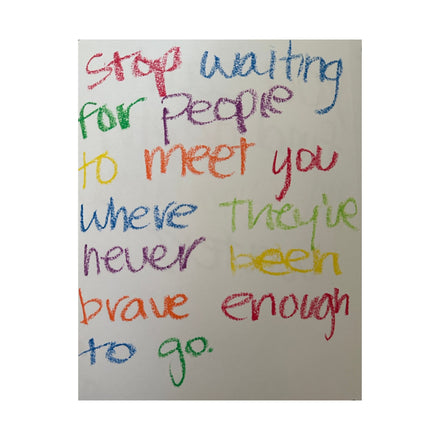 stop waiting
for people
to meet you
where they've
never been
brave enough
to go.